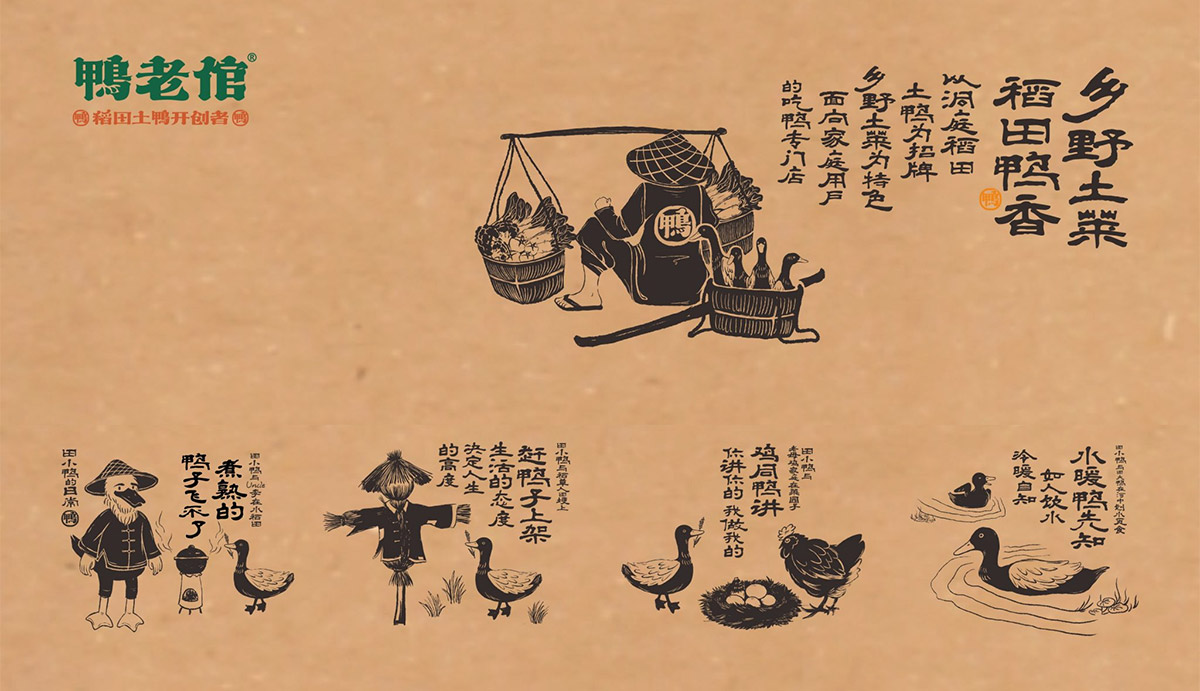 鴨老倌®
鴨 稻田土鸭开创者 鴨
乡野土菜
稻田鸭香
鴨
以洞庭稻田
土鸭为招牌
乡野土菜为特色
面向家庭用户
的吃鸭专门店
鴨
田小鸭的日常
鴨
田小鸭与
Uncle李在小稻田
煮熟的
鸭子飞不了
田小鸭与稻草人田埂上
赶鸭子上架
生活的态度
决定人生
的高度
田小鸭与
鸡同鸭讲
你讲你的 我做我的
水暖鸭先知
如人饮水
冷暖自知